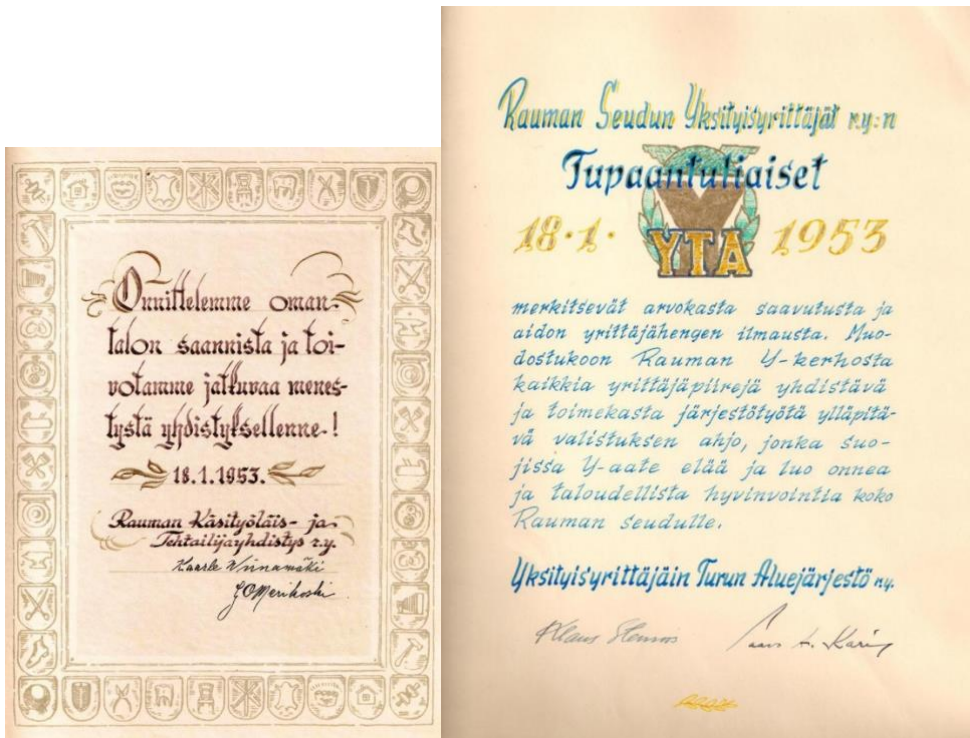 Onnittelemme oman
talon saannista ja toi-
votamme jatkuvaa menes-
tystä yhdistyksellenne.!
18.1.1953.
Rauman Käsityöläis- ja
Tehtailijayhdistys r.y.
Kaarle Viinamäki
J O Merikoski
Rauman Seudun Yksityisyrittäjät r.y:n
Tupaantuliaiset
18.1. 1953
YTA
merkitsevät arvokasta saavutusta ja
aidon yrittäjähengen ilmausta. Muo-
dostukoon Rauman Y-kerhosta
kaikkia yrittäjäpiirejä yhdistävä
ja toimekasta järjestötyötä ylläpitä-
vä valistuksen ahjo, jonka suo-
jissa Y-aate elää ja luo onnea
ja taloudellista hyvinvointia koko
Rauman seudulle.
Yksityisyrittäjäin Turun Aluejärjestö r.y.
Klaus